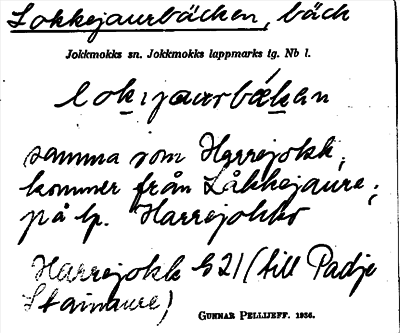 Lokkejaurbäcken, bäck
Jokkmokks sn. Jokkmokks lappmarks tg. Nb l.
lokıjaurbäkan
samma som Harrejokk,
kommer från Låkkejaure;
på lp. Harrejohko
Harrejokk G21 (till Padje
Stainaure)
GUNNAR PELLIJEFF. 1936.